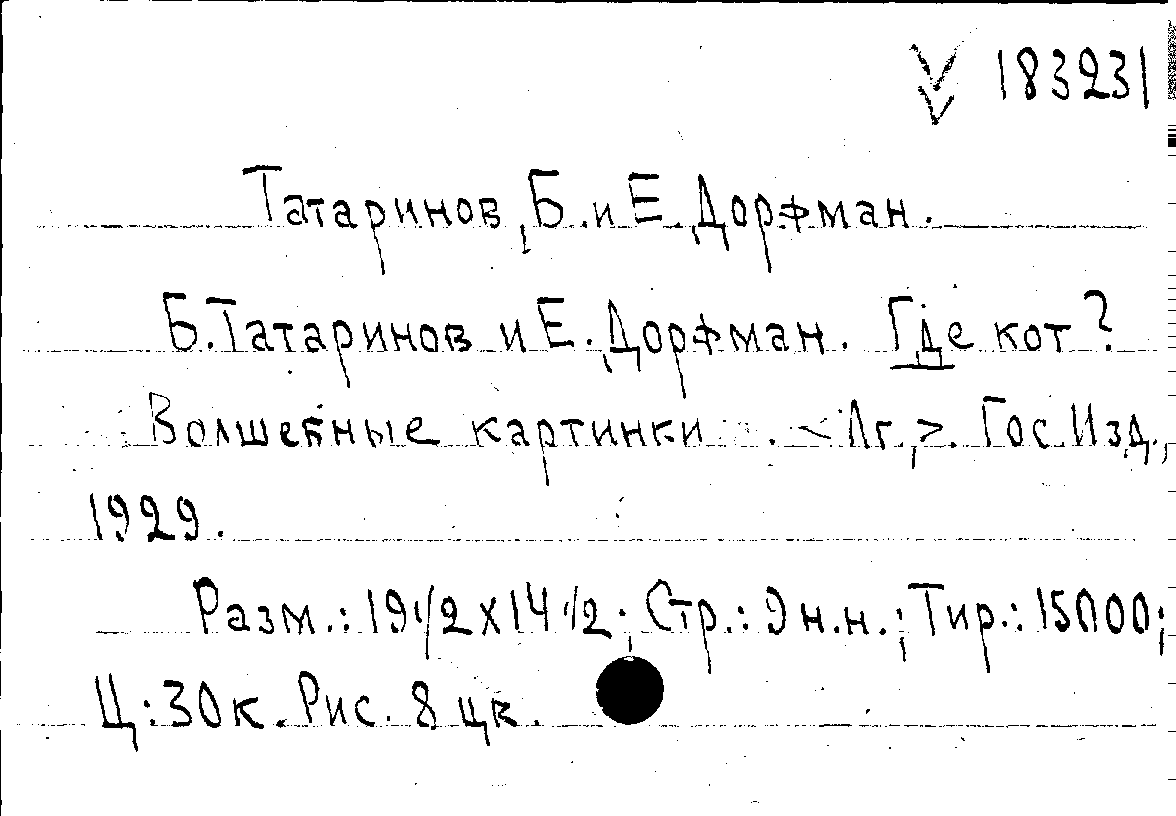 183231
Татаринов, Б. и Е. Дорфман.
Б. Татаринов и Е. Дорфман. Где кот?
Волшебные картинки. <Лг.,>. Гос. Изд.,
1929.
Разм.: 19 1/2 x 14 1/2; Стр.: 9 н.н.; Тир.: 15000;
Ц: 30 к. Рис. 8 цв.